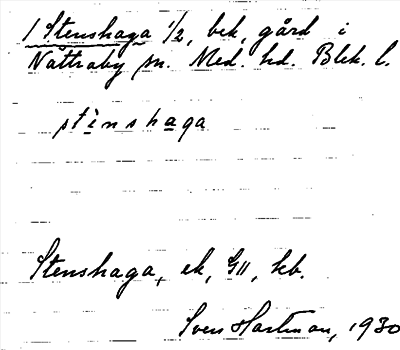 1 Stenshaga 1/2, bek, gård i
Nättraby sn. Med. hd. Blek. l.
stènshaga
Stenshaga, ek, GII, kb.
Sven Hartman, 1930